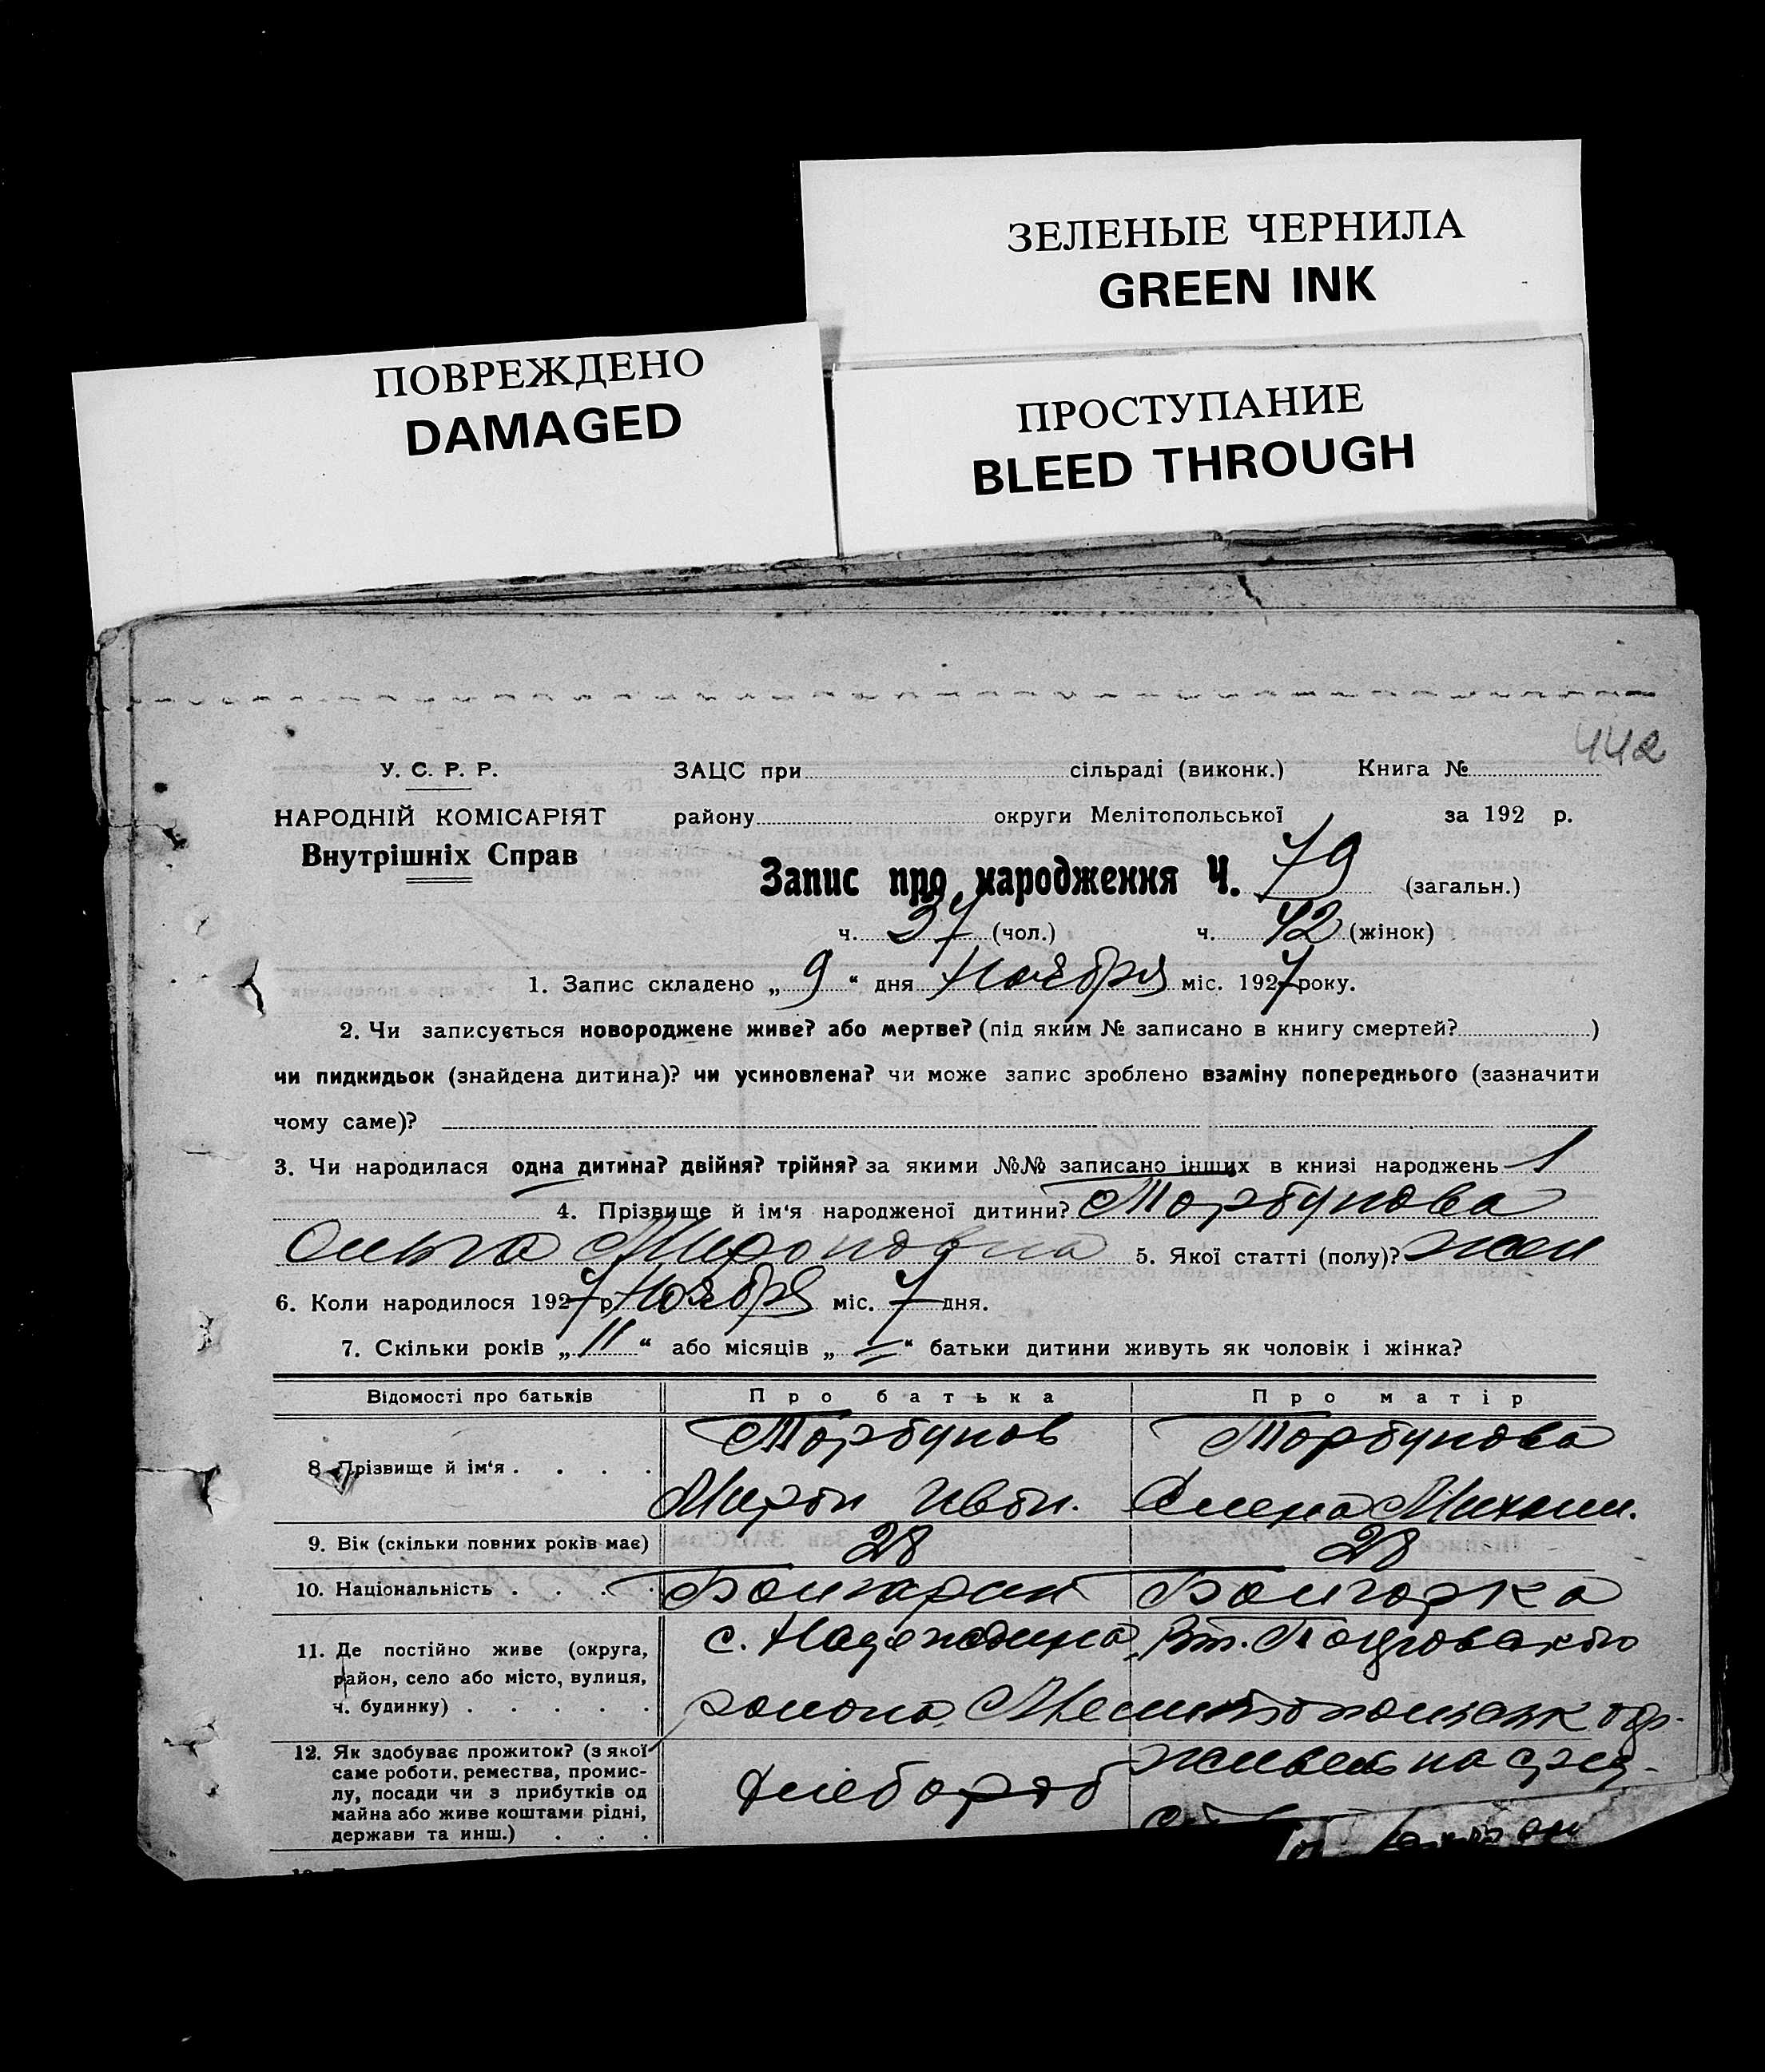 ЗЕЛЕНЫЕ ЧЕРНИЛА
GREEN INK
ПОВРЕЖДЕНО
DAMAGED
ПРОСТУПАНИЕ
BLEED THROUGH
442
У. С. Р. Р.
НАРОДНІЙ КОМІСАРІЯТ
Внутрішніх Справ
ЗАЦС при сільраді (виконк.) Книга №
району округи Мелітопольської за 192 р.
Запис про народження Ч. 79 (загальн.)
ч. 37 (чол.) ч. 42 (жінок)
1. Запис складено „ 9 “ дня Ноября міс. 1927 року.
2. Чи записується новороджене живе? або мертве? (під яким № записано в книгу смертей? )
чи пидкидьок (знайдена дитина)? чи усиновлена? чи може запис зроблено взаміну попереднього (зазначити
чому саме)?
3. Чи народилася одна дитина? двійня? трійня? за якими №№ записано інших в книзі народжень 1
4. Прізвище й ім‘я народженої дитини? Торбунова
Ольга Мироновна 5. Якої статті (полу)? жен
6. Коли народилося 1927 р. Ноября міс. 7 дня.
7. Скільки років „ 11 “ або місяців „ — “ батьки дитини живуть як чоловік і жінка?
Відомості про батьків Про батька Про матір
8. Прізвище й ім‘я . . . . .
Торбунов
Мирон Иван.
Торбунова
Елена Михаил.
9. Вік (скільки повних років має) 28 28
10. Національність . . . . Болгарин Болгарка
11. Де постійно живе (округа,
район, село або місто, вулиця,
ч. будинку) . . . . .
с. Надеждина,
района, Мелитопольск окр.
12. Як здобуває прожиток? (з якої
саме роботи, ремества, промис-
лу, посади чи з прибутків од
майна або живе коштами рідні,
держави та инш.) . . .
Хлебороб
на сред-